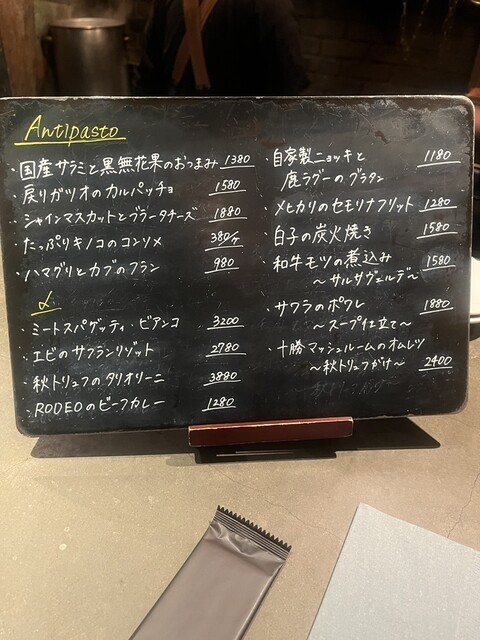 Antipasto
・国産サラミと黒無花果のおつまみ 1380
・戻りガツオのカルパッチョ 1580
・シャインマスカットとブラータチーズ 1880
・たっぷりキノコのコンソメ 380/ケ
・ハマグリとカブのフラン 980
・ミートスパゲッティ・ビアンコ 3200
・エビのサフランリゾット 2780
・秋トリュフのタリオリーニ 3880
・RODEOのビーフカレー 1280
・自家製ニョッキと 1180
鹿ラグーのグラタン
・メヒカリのセモリナフリット 1280
・白子の炭火焼き 1580
・和牛モツの煮込み 1580
〜サルサヴェルデ〜
・サワラのポワレ 1880
〜スープ仕立て〜
・十勝マッシュルームのオムレツ
〜秋トリュフがけ〜 2400